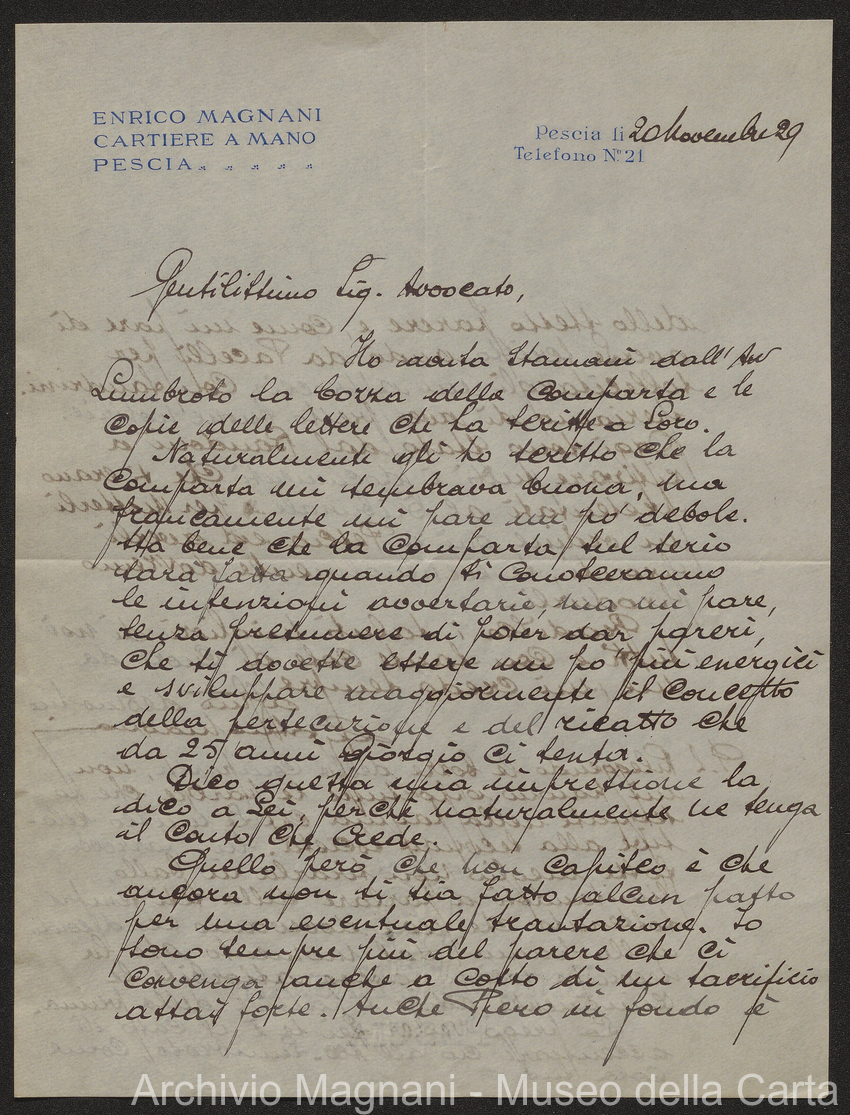 ENRICO MAGNANI
CARTIERE A MANO
PESCIA
Pescia li 20 Novembre 29
Telefono N.º 21
Gentilissimo Sig. Avvocato,
Ho avuta stamani dall'Avv
Lumbroso la bozza della Comparsa e le
copie delle lettere che ha scritte a Loro.
Naturalmente gli ho scritto che la
Comparsa mi sembrava buona, ma
francamente mi pare un po' debole.
Sta bene che la Comparsa sul serio
sarà fatta quando si conosceranno
le intenzioni avversarie, ma mi pare,
senza presumere di poter dar pareri,
che si dovesse essere un po' più energici
e sviluppare maggiormente il concetto
della persecuzione e del ricatto che
da 25 anni Giorgio ci tenta.
Dico questa mia impressione la
dico a Lei, perchè naturalmente ne tenga
il conto che crede.
Quello però che non capisco è che
ancora non si sia fatto alcun passo
per una eventuale transazione. Io
sono sempre più del parere che ci
convenga anche a costo di un sacrificio
assai forte. Anche Piero in fondo è
Archivio Magnani - Museo della Carta